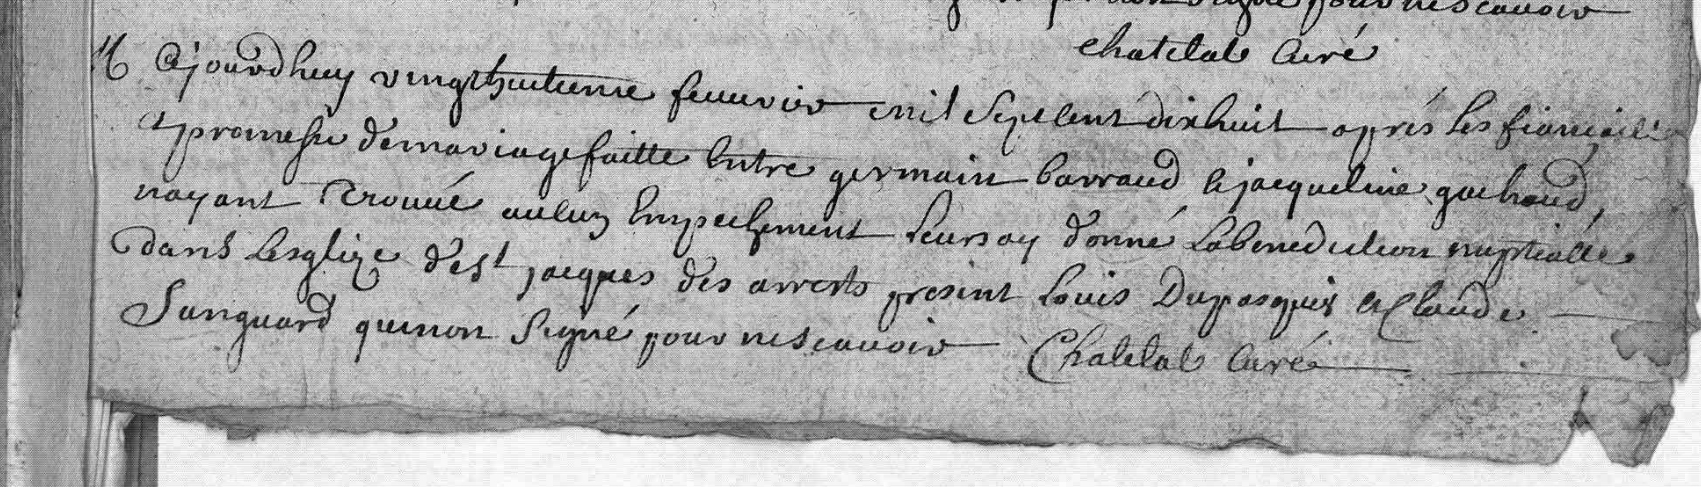 pour nescavoir
chatelat curé
M Ajourdhuy vingthuitieme feuvrier mil sept cent dixhuit aprés les fiancaille
et promesse de mariage faitte entre germain barraud et jacqueline gachaud,
nayant trouué aucun Empechement leursay donné la benediction nuptialle
dans lesglize de st jacques des arrests present Louis Dupasquis et Claude
Sanguard qui non signé pour nescavoir Chatelat curé